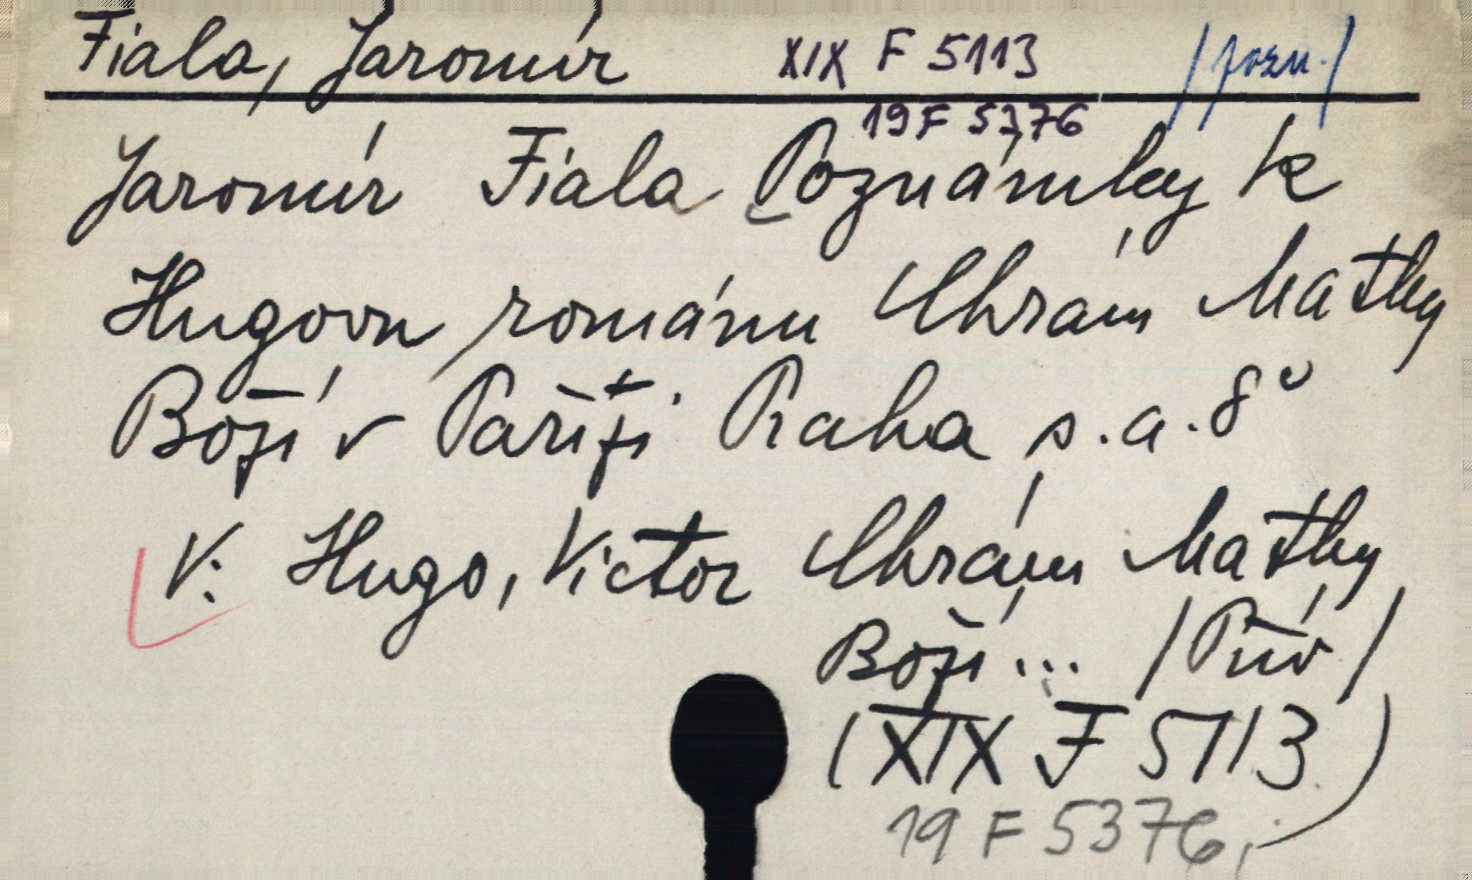 Fiala, Jaromír XIX F 5113 /pozn./
19 F 5376
Jaromír Fiala Poznámky k
Hugovu románu Chrám Matky
Boží v Paříži Praha s.a. 8°
V: Hugo, Victor Chrám Matky
Boží... /Pův/
(XIX F 5113)
19 F 5376,